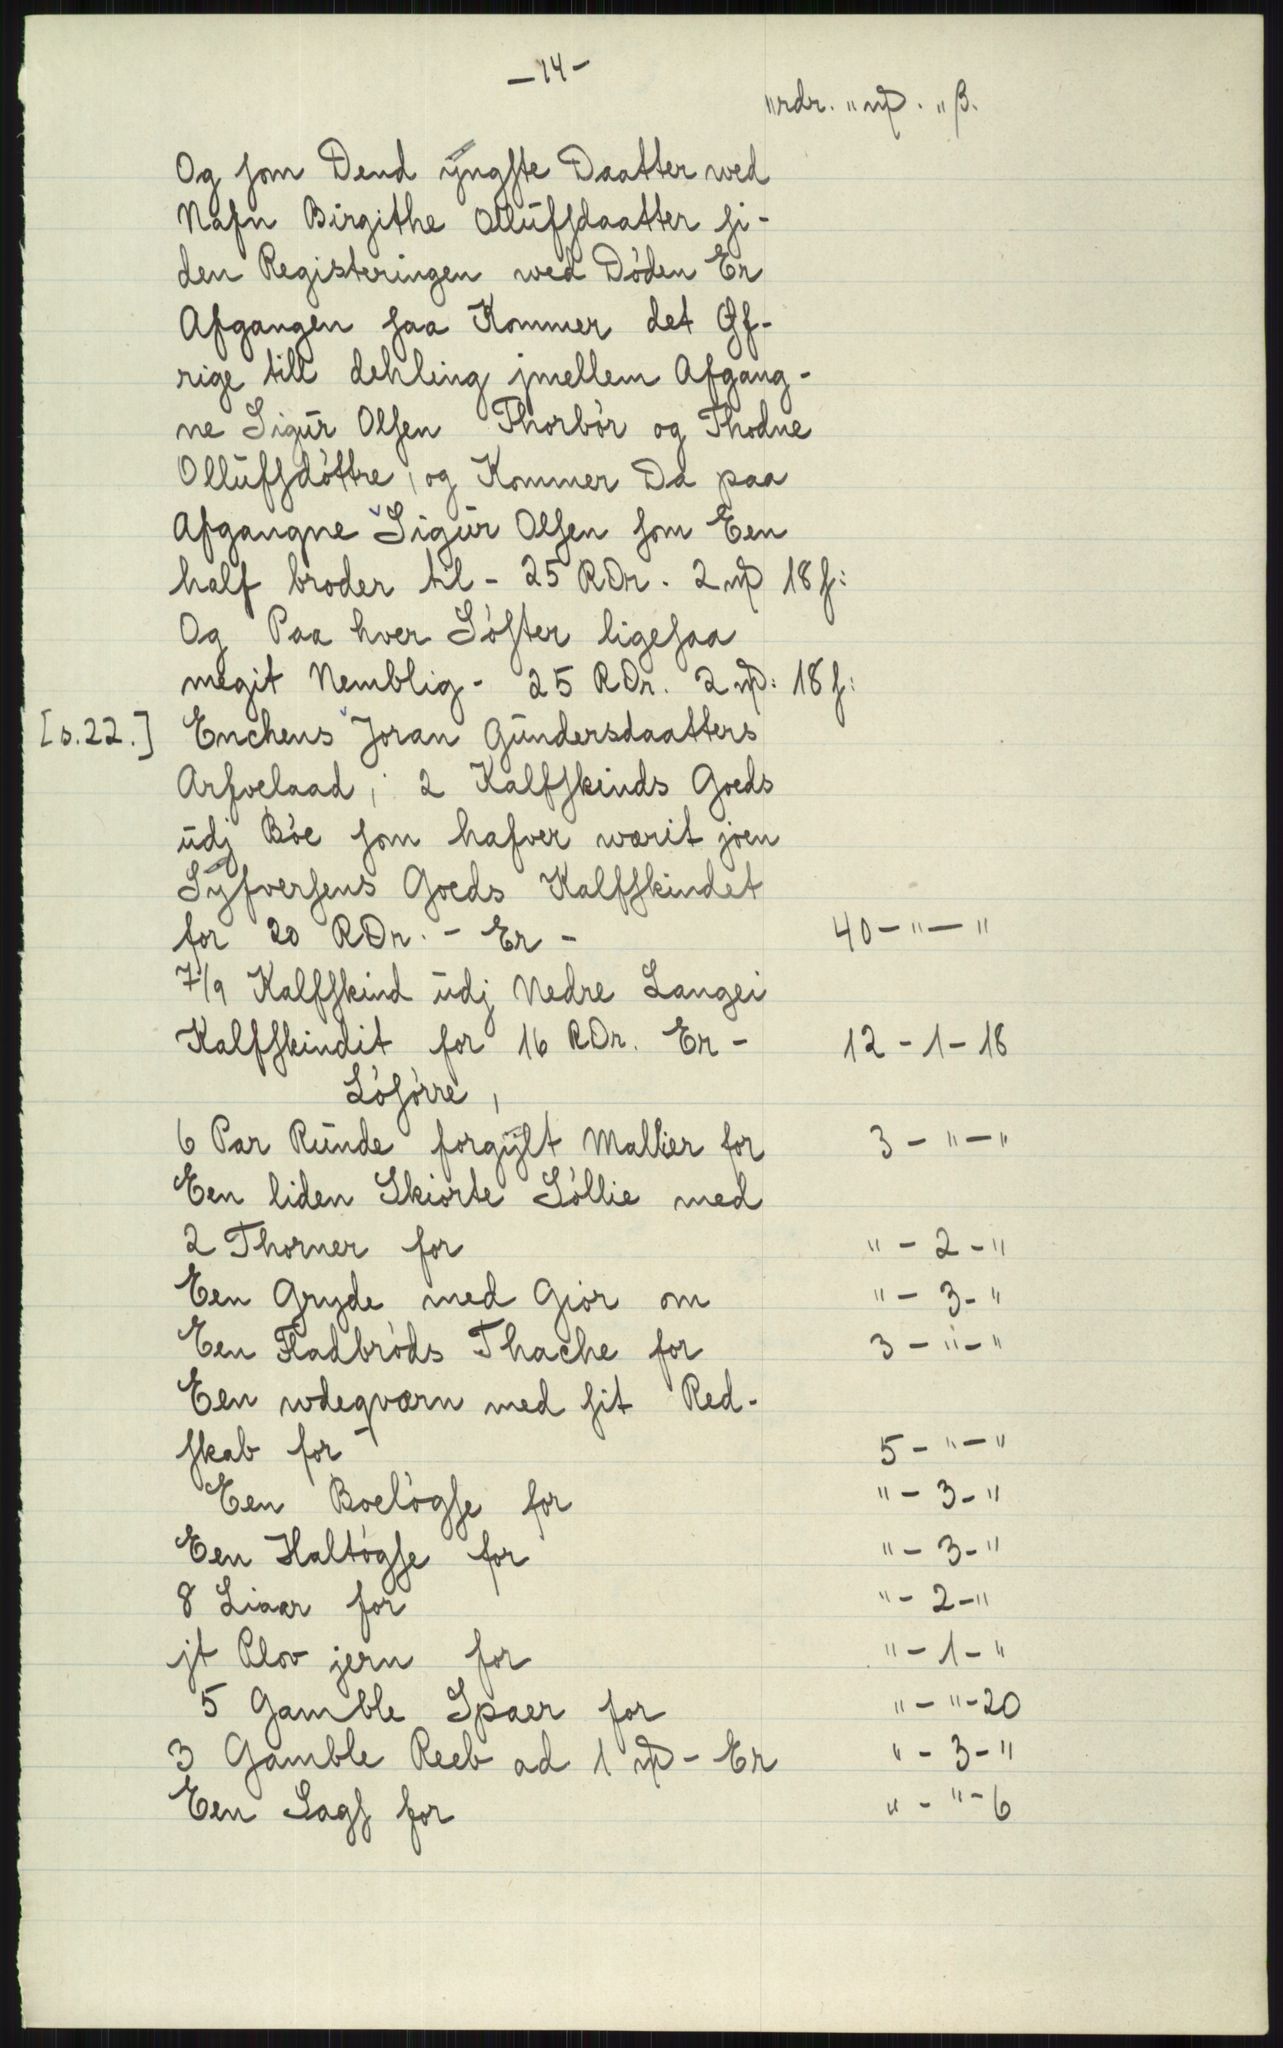 -14-
"rdr. "mþ. "β.
Og som Dend ÿngste Daatter wed
Nafn Birgithe Ollufsdaatter si-
den Registeringen wed Döden Er
Afgangen saa Kommer det Øf-
rige till dehling jmellem Afgang-
ne Sigur Olsen Thorbör og Thodne
Ollufsdöttre, og Kommer Da paa
Afgangne Sigur Olsen som Een
half broder til - 25 RDr. 2 mþ 18 s:
Og Paa hver Söster ligesaa
megit Nemblig - 25 RDr. 2 mþ: 18 s:
[s.22.] Enchens Joran Gundersdaatters
Arfvelaad, 2 Kalfskinds Goeds
udj Böe som hafver wærit joen
Sÿfversens Goeds Kalfskindet
for 20 RDr. - Er - 40 - " - "
7/9 Kalfskind udj Nedre Langei
Kalfskindit for 16 RDr. Er - 12 - 1 - 18
Lösörre,
6 Par Runde forgÿlt Mallier for 3 - " - "
Een liden Skiorte Söllie med
2 Thorner for " - 2 - "
Een Gryde med Giör om " - 3 - "
Een Fladbröds Thache for 3 - " - "
Een wdeqværn med sit Red-
skab for - 5 - " - "
Een Boelögse for " - 3 - "
Een Haltögse for " - 3 - "
8 Liaar for " - 2 - "
jt Plov jern for " - 1 - "
5 Gamble Spaer for " - " - 20
3 Gamble Reeb ad 1 mþ - Er " - 3 - "
Een Sags for " - " - 6